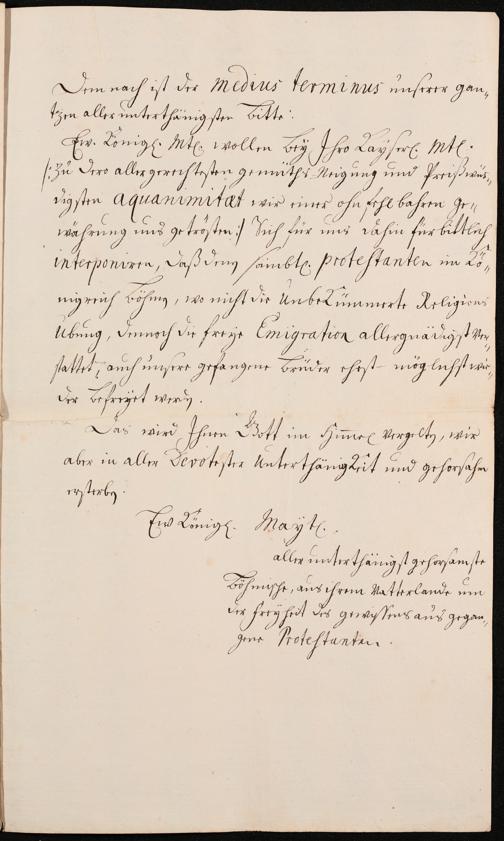 Dem nach ist der medius terminus unserer gan-
tzen allerunterthänigsten Bitte:
Ew. Königl. Mt. wollen bey Ihro Kayserl. Mtt.
/: zu Dero allergerechtesten gemüths-Neigung und Preißwür-
digsten aquanimitæt wir eines ohnfehlbahren Ge-
währung uns getrösten :/ Sich für uns dahin fürbittlich
interponiren, daß denen sämbtl. protestanten im Kö-
nigreich Böhmen, wo nicht die Unbekümmerte Religions
Übung, dennoch die freye Emigration allergnädigst Ver-
stattet, auch unsere gefangene Brüder ehest möglichst wie-
der befreyet werden.
Das wird Ihnen Gott im Himmel vergelten, wir
aber in aller Devotester Unterthänigkeit und gehorsahm
ersterben.
Ew Königl. Mayt.
allerunterthänigst gehorsamste
Böhmische, aus ihrem Vatterlande um
der Freyheit des gewissens ausgegan-
gene Protestanten.